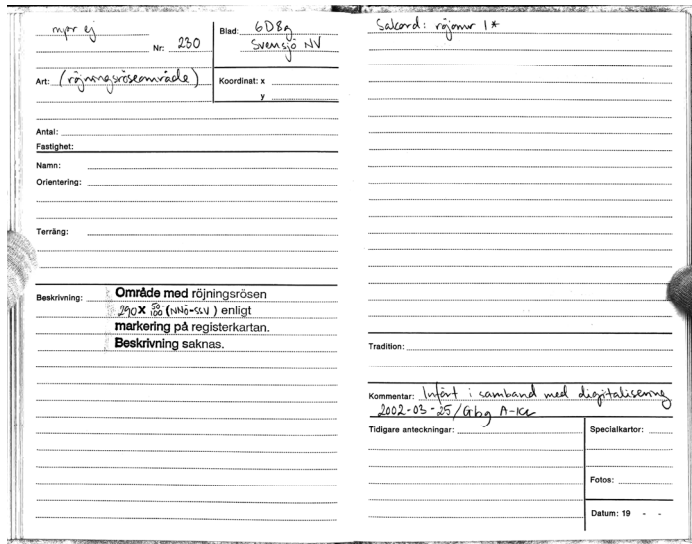 mpr ej
Nr: 230
Blad: 6D8g
Svensjö NV
Art: (röjningsröseområde)
Koordinat: x
y
Antal:
Fastighet:
Namn:
Orientering:
Terräng:
Beskrivning: Område med röjningsrösen
290 X 50/100 (NNÖ-SSV) enligt
markering på registerkartan.
Beskrivning saknas.
Sakord: röjomr 1*
Tradition:
Kommentar: Infört i samband med digitalisering
2002-03-25/Gbg A-K
Tidigare anteckningar:
Specialkartor:
Fotos:
Datum: 19 - -